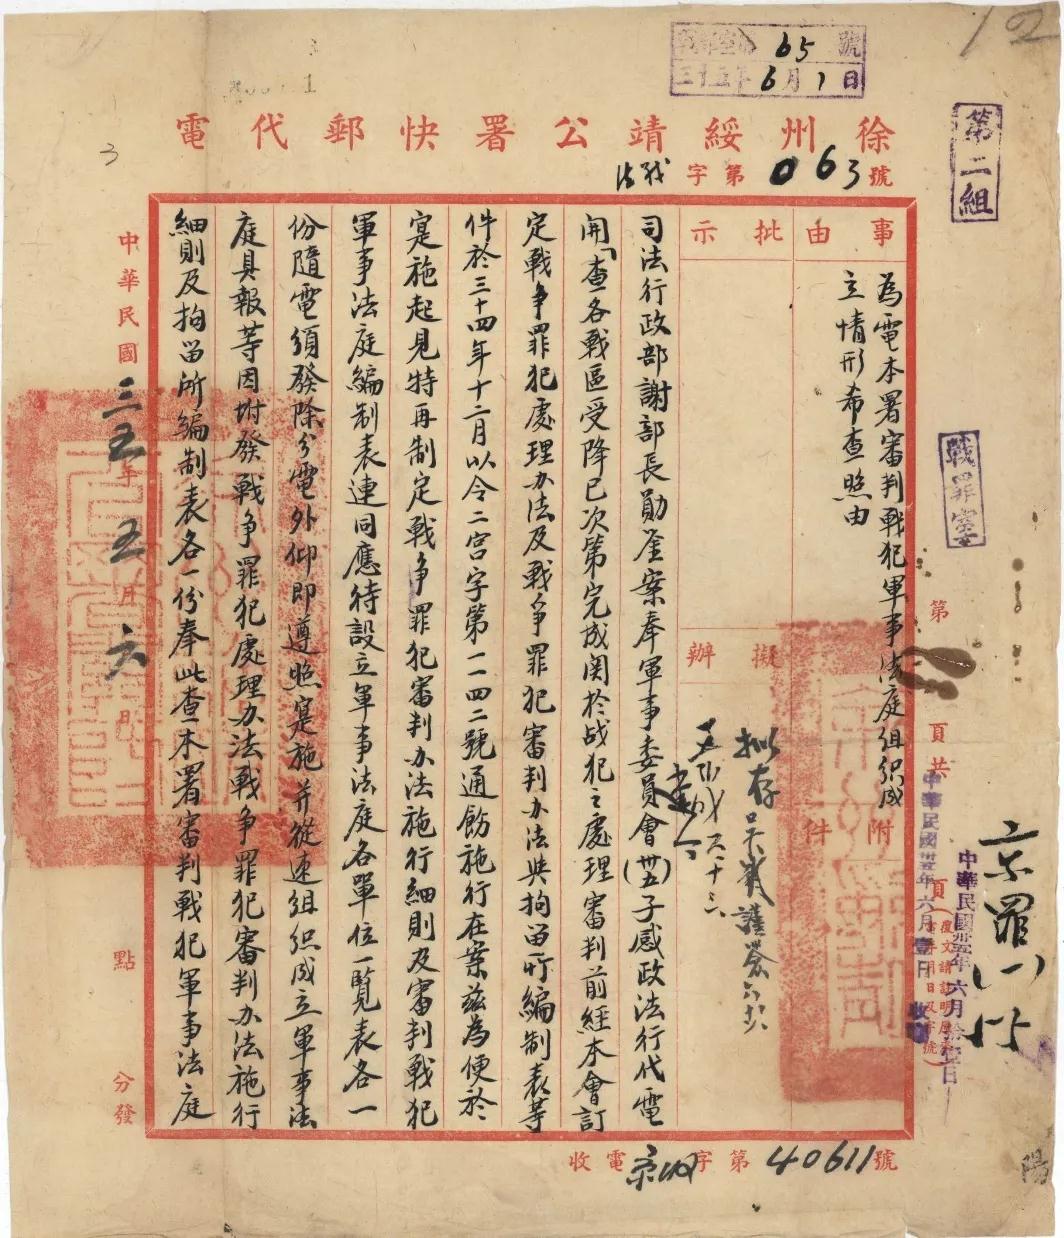 戰罪室 65 號
三十五年 6月1日
徐州綏靖公署快郵代電
法戰字第063號
第二組
戰罪室
事由
為電本署審判戰犯軍事法庭組織成
立情形希查照由
批示
擬辦
擬存
附件
司法行政部謝部長勛鉴案奉軍事委員會(卅五)子感政法行代電
開「查各戰區受降已次第完成関於战犯之處理審判前經本會訂
定戰争罪犯處理办法及戰争罪犯審判办法與拘留所编制表等
件於三十四年十二月以令二宫字第一一四二號通飭施行在案茲為便於
寔施起見特再制定戰争罪犯審判办法施行細則及審判戰犯
軍事法庭编制表連同應待設立軍事法庭各單位一覽表各一
份隨電須發除分電外仰即遵照寔施并從速组织成立軍事法
庭具報等因坿發戰争罪犯處理办法戰争罪犯審判办法施行
細則及拘留所编制表各一份奉此查本署審判戰犯軍事法庭
中華民國三五年五月六日 點 分發
第 頁共 頁
中華民國卅五年六月壹日收到
京罪(一)
陽
收電京 字第40611號